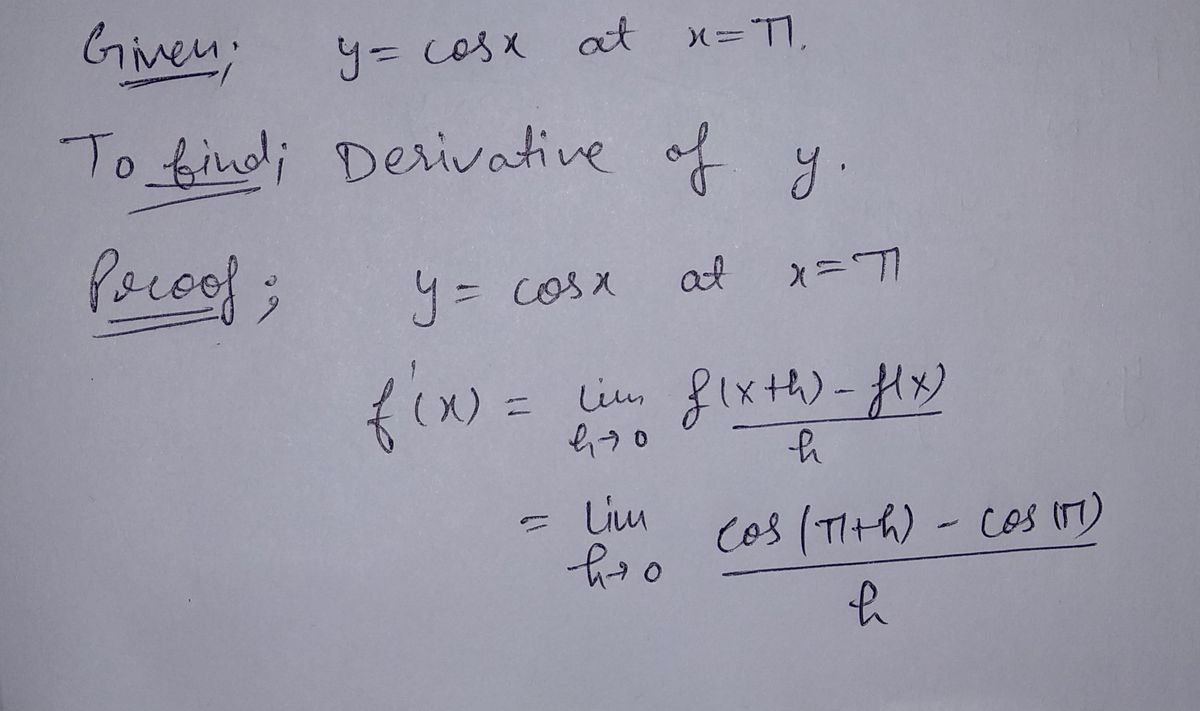 Given; y = cosx at x=π.
To find; Derivative of y.
Proof; y = cosx at x=π
f'(x) = lim h→0 f(x+h) - f(x) / h
= lim h→0 cos(π+h) - cos(π) / h